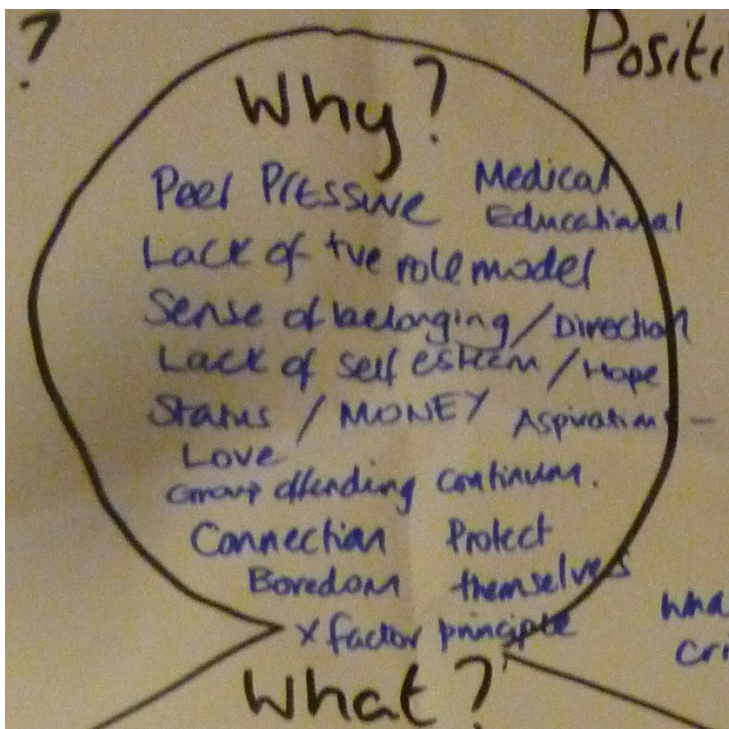 ?
Positi
Why?
Peer Pressure Medical
Educational
Lack of +ve role model
Sense of belonging / Direction
Lack of self esteem / Hope
Status / MONEY Aspirations -
Love
Group offending continuum.
Connection Protect
Boredom themselves
X factor principle
Wha
cri
What?